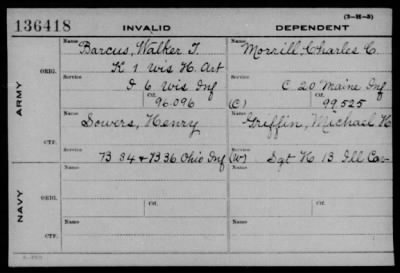 (3-H-5)
136418 INVALID DEPENDENT
Name Name
Barcus, Walker T. Morrill, Charles C.
ARMY ORIG. Service Service
K 1 Wis H. Art
D 6 Wis Inf C. 20 Maine Inf
Ctf. Ctf.
96.096 (C) 99.525
Name Name
Sowers, Henry Griffin, Michael H
CTF. Service Service
73 34 & 73 36 Ohio Inf (W) Sgt H 13 Ill Cav
NAVY ORIG. Name Ctf. Name Ctf.
CTF. Name Name